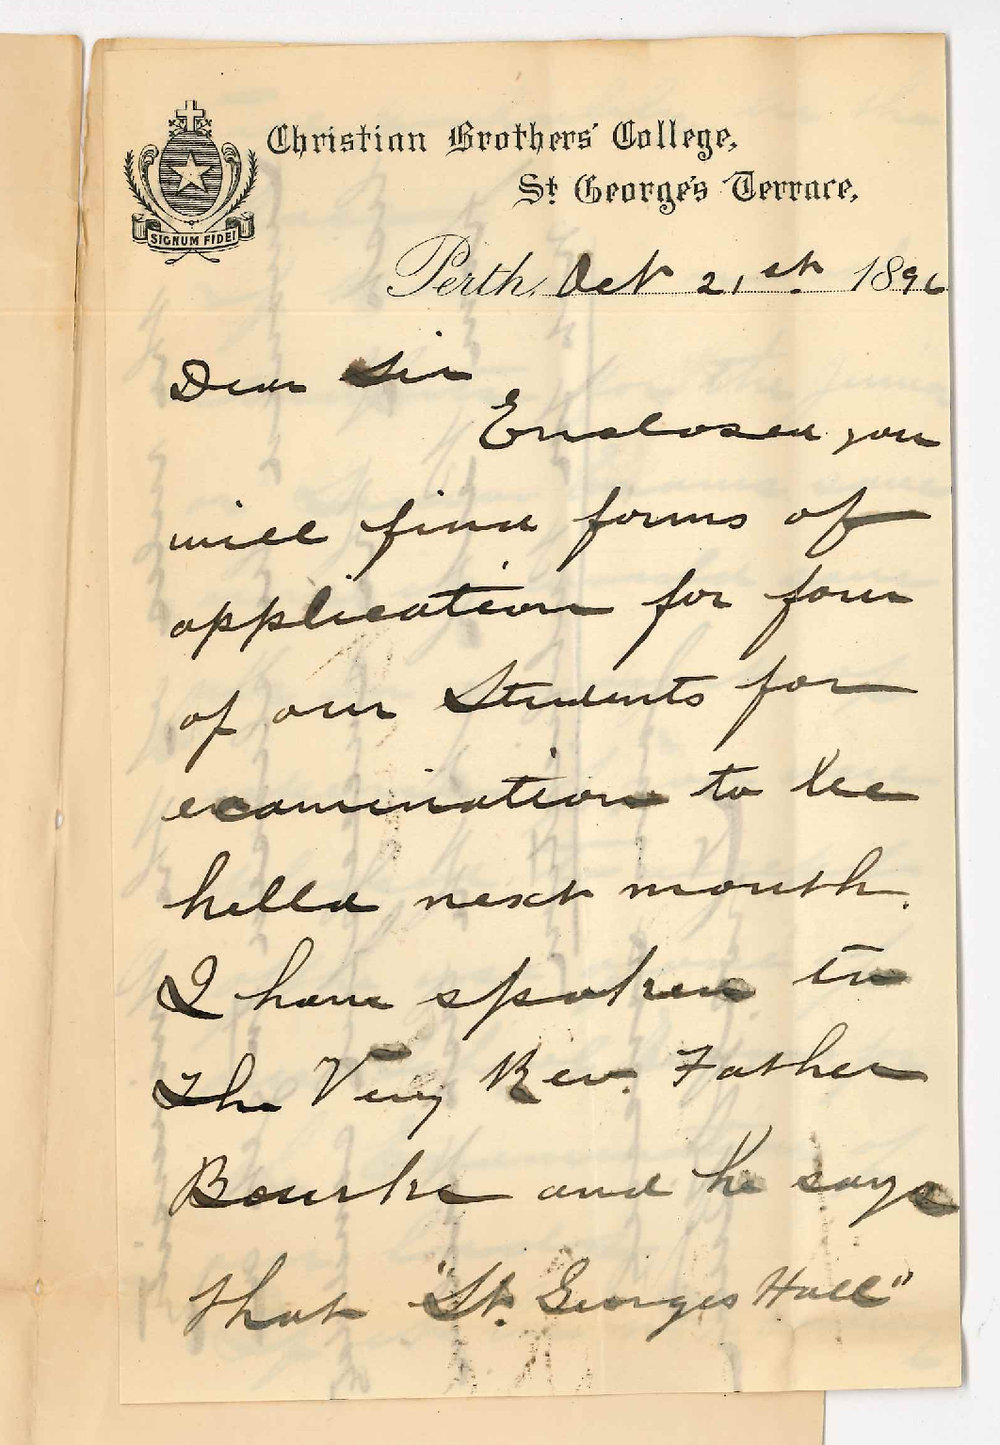 Christian Brothers' College,
St George's Terrace,
SIGNUM FIDEI
Perth, Oct 21st 1896
Dear Sir
Enclosed you
will find forms of
application for four
of our Students for
examination to be
helld next month.
I have spoken to
the Very Rev. Father
Bourke and he says
that "St. Georges Hall"